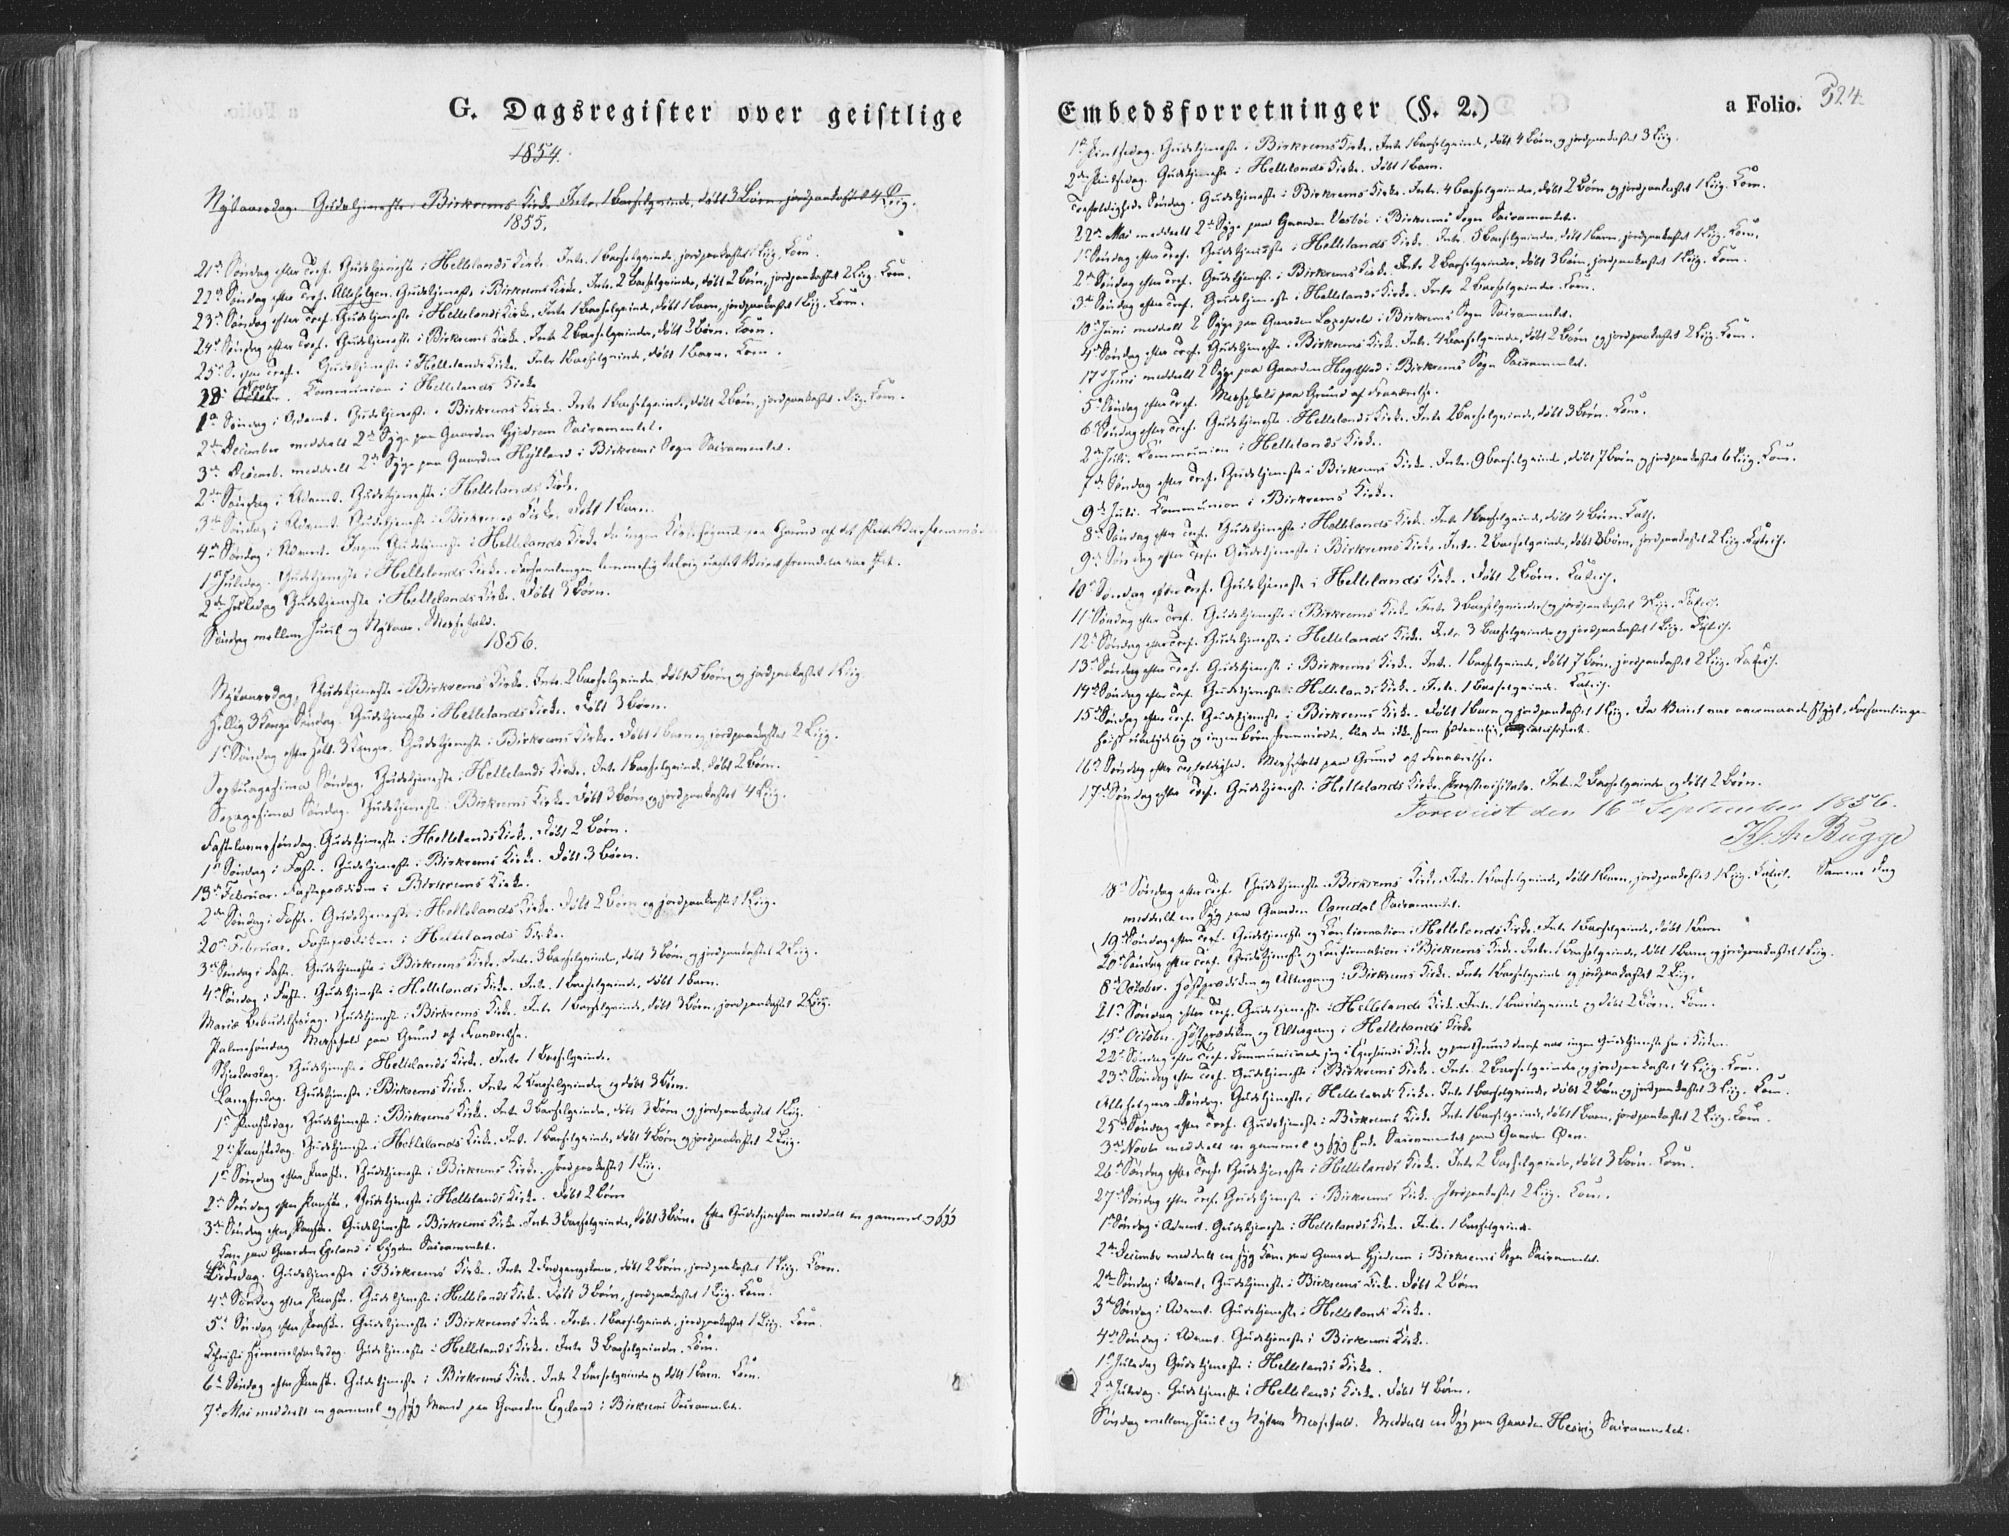 G. Dagsregister over geistlige
1854.
Nytaarsdag. Gudstjeneste i Birkrems Kirke. Intr. 1 Barselqvinde, døbt 3 Børn, jordpaakastet 4 Liig.
1855.
21de Søndag efter Tref. Gudstjeneste i Hellelands Kirke. Intr. 1 Barselqvinde, jordpaakastet 1 Liig. Kom.
22de Søndag efter Tref. Allehelgen. Gudstjeneste i Birkrems Kirke. Intr. 2 Barselqvinder, døbt 2 Børn, jordpaakastet 2 Liig. Kom.
23de Søndag efter Tref. Gudstjeneste i Hellelands Kirke. Intr. 1 Barselqvinde, døbt 1 Barn, jordpaakastet 1 Liig. Kom.
24de Søndag efter Tref. Gudstjeneste i Birkrems Kirke. Intr. 2 Barselqvinder, døbt 2 Børn. Kom.
25de S. efter Tref. Gudstjeneste i Hellelands Kirke. Intr. 1 Barselqvinde, døbt 1 Barn. Kom.
28de Novbr. Kommunion i Hellelands Kirke
1ste Søndag i Advent. Gudstjeneste i Birkrems Kirke. Intr. 1 Barselqvinde, døbt 2 Børn, jordpaakastet Liig. Kom.
2den December meddeelt 2de Syge paa Gaarden Gjedrem Sacramentet.
3die Decemb. meddeelt 2de Syge paa Gaarden Hylland i Birkrems Sogn Sacramentet.
2den Søndag i Advent. Gudstjeneste i Hellelands Kirke.
3die Søndag i Advent. Gudstjeneste i Birkrems Kirke. Døbt 1 Barn.
4de Søndag i Advent. Ingen Gudstjeneste i Hellelands Kirke da ingen Kirkefolk paa Grund af det
1ste Juledag. Gudstjeneste i Hellelands Kirke. Forsamlingen temmelig talrig uagtet Veiret fremdeles var
2den Juledag Gudstjeneste i Hellelands Kirke. Døbt 3 Børn.
Søndag mellem Juul og Nytaar. Messefald.
1856.
Nytaarsdag, Gudstjeneste i Birkrems Kirke. Intr. 2 Barselqvinder døbt 5 Børn og jordpaakastet 1 Liig.
Hellig 3 Konge Søndag. Gudstjeneste i Hellelands Kirke. Døbt 3 Børn.
1ste Søndag efter Hell. 3 Konger. Gudstjeneste i Birkrems Kirke. Døbt 1 Barn og jordpaakastet 2 Liig.
Septuagesima Søndag. Gudstjeneste i Hellelands Kirke. Intr. 1 Barselqvinde, døbt 2 Børn.
Sexagesima Søndag. Gudstjeneste i Birkrems Kirke. Døbt 3 Børn og jordpaakastet 4 Liig.
Fastelavnssøndag. Gudstjeneste i Hellelands Kirke. Døbt 2 Børn.
1ste Søndag i Faste. Gudstjeneste i Birkrems Kirke. Døbt 3 Børn.
13de Februar. Fasteprædiken i Birkrems Kirke.
2den Søndag i Faste. Gudstjeneste i Hellelands Kirke. Døbt 2 Børn og jordpaakastet 1 Liig.
20de Februar. Fasteprædiken i Hellelands Kirke.
3die Søndag i Faste. Gudstjeneste i Birkrems Kirke. Intr. 3 Barselqvinder, døbt 3 Børn og jordpaakastet 2 Liig.
4de Søndag i Faste. Gudstjeneste i Hellelands Kirke. Intr. 1 Barselqvinde, døbt 1 Barn.
Mariæ Bebudelsesdag. Gudstjeneste i Birkrems Kirke. Intr. 1 Barselqvinde, døbt 3 Børn, jordpaakastet 2 Liig.
Palmesøndag Messefald paa Grund af Fraværelse.
Skjertorsdag. Gudstjeneste i Hellelands Kirke. Intr. 1 Barselqvinde.
Langfredag. Gudstjeneste i Birkrems Kirke. Intr. 2 Barselqvinder og døbt 3 Børn.
1ste Paaskedag. Gudstjeneste i Birkrems Kirke. Intr. 3 Barselqvinder, døbt 3 Børn og jordpaakastet 1 Liig.
2den Paaskedag. Gudstjeneste i Hellelands Kirke. Intr. 1 Barselqvinde, døbt 4 Børn og jordpaakastet 2 Liig.
1ste Søndag efter Paaske. Gudstjeneste i Birkrems Kirke. Jordpaakastet 1 Liig.
2den Søndag efter Paaske, Gudstjeneste i Hellelands Kirke. Døbt 2 Børn
3die Søndag efter Paaske. Gudstjeneste i Birkrems Kirke. Intr. 3 Barselqvinder, døbt 3 Børn. Efter Gudstjenesten meddeelt en gammel og syg
Kone paa Gaarden Egeland i Bygden Sacramentet.
Bededag. Gudstjeneste i Birkrems Kirke. Intr. 2 , døbt 2 Børn, jordpaakastet 1 Liig. Kom.
4de Søndag efter Paaske. Gudstjeneste i Hellelands Kirke. Døbt 3 Børn, jordpaakastet 1 Liig. Kom.
5te Søndag efter Paaske. Gudstjeneste i Birkrems Kirke. Intr. 1 Barselqvinde, jordpaakastet 1 Liig. Kom.
Christi Himmelfartsdag. Gudstjeneste i Hellelands Kirke. Intr. 3 Barselqvinder. Kom.
6te Søndag efter Paaske. Gudstjeneste i Birkrems Kirke. Intr. 2 Barselqvinder og døbt 1 Barn. Kom.
7de Mai meddeelt en gammel og syg Mand paa Gaarden Egeland i Birkrems Sacramentet.
Embedsforretninger (§. 2.)
a Folio. 324
1ste Pintsedag. Gudstjeneste i Birkrems Kirke. Intr. 1 Barselqvinde, døbt 4 Børn og jordpaakastet 3 Liig.
2den Pintsedag. Gudstjeneste i Hellelands Kirke. Døbt 1 Barn.
Trefoldigheds Søndag. Gudstjeneste i Birkrems Kirke. Intr. 4 Barselqvinder, døbt 2 Børn og jordpaakastet 1 Liig. Kom.
22de Mai meddeelt 2de Syge paa Gaarden Vasbøe i Birkrems Sogn Sacramentet.
1ste Søndag efter Tref. Gudstjeneste i Hellelands Kirke. Intr. 5 Barselqvinder, døbt 1 Barn, jordpaakastet 1 Liig. Kom.
2den Søndag efter Tref. Gudstjeneste i Birkrems Kirke. Intr. 2 Barselqvinder, døbt 3 Børn, jordpaakastet 1 Liig. Kom.
3die Søndag efter Tref. Gudstjeneste i Hellelands Kirke. Intr. 2 Barselqvinder. Kom.
10de Juni meddeelt 2 Syge paa Gaarden i Birkrems Sogn Sacramentet.
4de Søndag efter Tref. Gudstjeneste i Birkrems Kirke. Intr. 4 Barselqvinder, døbt 2 Børn og jordpaakastet 2 Liig. Kom.
17de Juni meddeelt 2 Syge paa Gaarden Hegelstad i Birkrems Sogn Sacramentet.
5te Søndag efter Tref. Messefald paa Grund af Fraværelse.
6te Søndag efter Tref. Gudstjeneste i Hellelands Kirke. Intr. 2 Barselqvinder, døbt 3 Børn. Kom.
2den Juli. Kommunion i Hellelands Kirke.
7de Søndag efter Tref. Gudstjeneste i Birkrems Kirke. Intr. 9 Barselqvinder, døbt 7 Børn og jordpaakastet 6 Liig. Kom.
9de Juli. Kommunion i Birkrems Kirke.
8de Søndag efter Tref. Gudstjeneste i Hellelands Kirke. Intr. 1 Barselqvinde, døbt 4 Børn. Kath.
9de Søndag efter Tref. Gudstjeneste i Birkrems Kirke. Intr. 2 Barselqvinder, døbt 2 Børn, jordpaakastet 2 Liig. Katech.
10de Søndag efter Tref. Gudstjeneste i Hellelands Kirke. Døbt 2 Børn. Katech.
11te Søndag efter Tref. Gudstjeneste i Birkrems Kirke. Intr. 3 Barselqvinder og jordpaakastet 3 Liig. Katech.
12te Søndag efter Tref. Gudstjeneste i Hellelands Kirke. Intr. 3 Barselqvinder og jordpaakastet 1 Liig. Katech.
13de Søndag efter Tref. Gudstjeneste i Birkrems Kirke. Intr. 1 Barselqvinde, døbt 7 Børn, jordpaakastet 2 Liig. Katech.
14de Søndag efter Tref. Gudstjeneste i Hellelands Kirke. Intr. 1 Barselqvinde. Katech.
15de Søndag efter Tref. Gudstjeneste i Birkrems Kirke. Døbt 1 Barn og jordpaakastet 1 Liig. Da Veiret var overmaade stygt, Forsamlingen
høist ubetydelig og ingen Børn fremmødte, blev der ikke, som sædvanlig, catechiseret.
16de Søndag efter Trefoldighed. Messefald paa Grund af Fraværelse.
17de Søndag efter Tref. Gudstjeneste i Hellelands Kirke. Provstevisitats. Intr. 2 Barselqvinder og døbt 2 Børn.
Foreviist den 16de September 1856.
Bugge
18de Søndag efter Tref. Gudstjeneste i Birkrems Kirke. Intr. 1 Barselqvinde, døbt 1 Barn, jordpaakastet 1 Liig. Katech. Samme Dag
meddeelt en Syg paa Gaarden Ovsdal Sacramentet.
19de Søndag efter Tref. Gudstjeneste og Confirmation i Hellelands Kirke. Intr. 1 Barselqvinde, døbt 1 Barn
20de Søndag efter Tref. Gudstjeneste og Confirmation i Birkrems Kirke. Intr. 1 Barselqvinde, døbt 1 Barn og jordpaakastet 1 Liig.
8de October. Høstprædiken og Altergang i Birkrems Kirke. Intr. 1 Barselqvinde og jordpaakastet 2 Liig.
21de Søndag efter Tref. Gudstjeneste i Hellelands Kirke. Intr. 1 Barselqvinde og døbt 2 Børn. Kom.
15de October. Høstprædiken og Altergang i Hellelands Kirke
22de Søndag efter Tref. Communicerede jeg i Egersunds Kirke og paa Grund deraf var ingen Gudstjeneste her i Kirken.
23de Søndag efter Tref. Gudstjeneste i Birkrems Kirke. Intr. 2 Barselqvinder, og jordpaakastet 4 Liig. Kom.
Allehelgens Søndag. Gudstjeneste i Hellelands Kirke. Intr. 1 Barselqvinde, døbt 2 Børn og jordpaakastet 3 Liig. Kom.
25de Søndag efter Tref. Gudstjeneste i Birkrems Kirke. Intr. 1 Barselqvinde, døbt 1 Barn, jordpaakastet 2 Liig. Kom.
3die Novbr meddeelt en gammel og syg Enke Sacramentet paa Gaarden Øen.
26de Søndag efter Tref. Gudstjeneste i Hellelands Kirke. Intr. 2 Barselqvinder, døbt 3 Børn. Kom.
27de Søndag efter Tref. Gudstjeneste i Birkrems Kirke. Jordpaakastet 2 Liig. Kom.
1ste Søndag i Advent. Gudstjeneste i Hellelands Kirke. Intr. 1 Barselqvinde.
2den December meddeelt en syg Kone paa Gaarden Gjedrem i Birkrems Sogn Sacramentet.
2den Søndag i Advent, Gudstjeneste i Birkrems Kirke. Døbt 2 Børn
3die Søndag i Advent. Gudstjeneste i Hellelands Kirke.
4de Søndag i Advent. Gudstjeneste i Birkrems Kirke.
1ste Juledag Gudstjeneste i Hellelands Kirke.
2den Juledag. Gudstjeneste i Hellelands Kirke. Døbt 4 Børn.
Søndag mellem Juul og Nytaar Messefald. Meddeelt en Syg paa Gaarden Sacramentet.